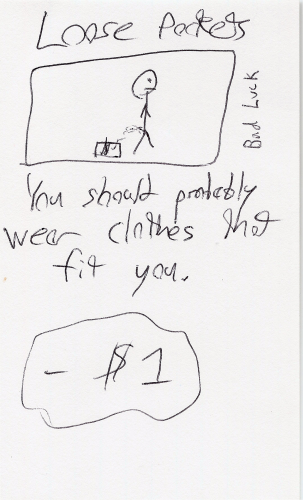 Loose Pockets
Bad Luck
You should probably
wear clothes that
fit you.
- $1